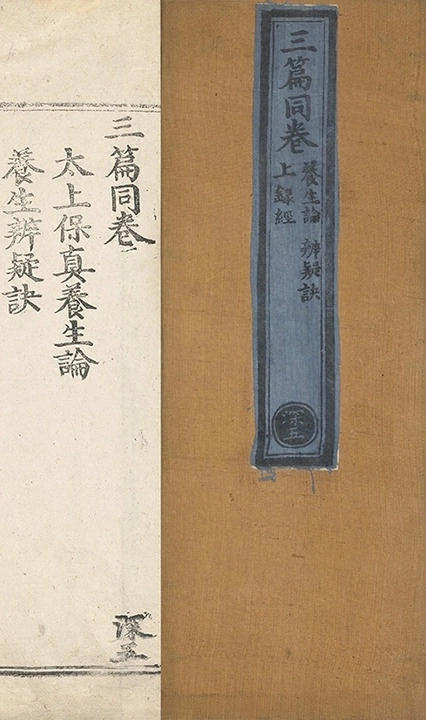 三篇同卷
養生論 辨疑訣
上錄經
深五
三篇同卷
太上保真養生論
養生辨疑訣
深五